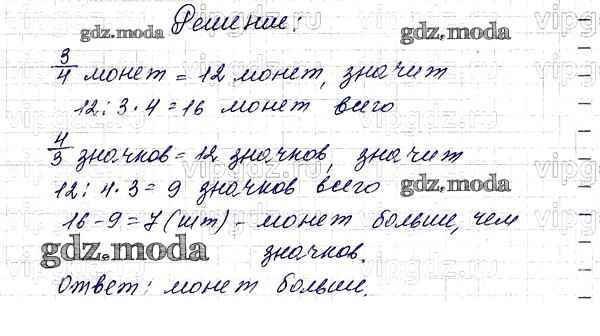 Решение:
3/4 монет = 12 монет, значит
12 : 3 · 4 = 16 монет всего
4/3 значков = 12 значков, значит
12 : 4 · 3 = 9 значков всего
16 - 9 = 7 (шт) - монет больше, чем
значков.
Ответ: монет больше.
gdz.moda
gdz.moda
gdz.moda
gdz.moda